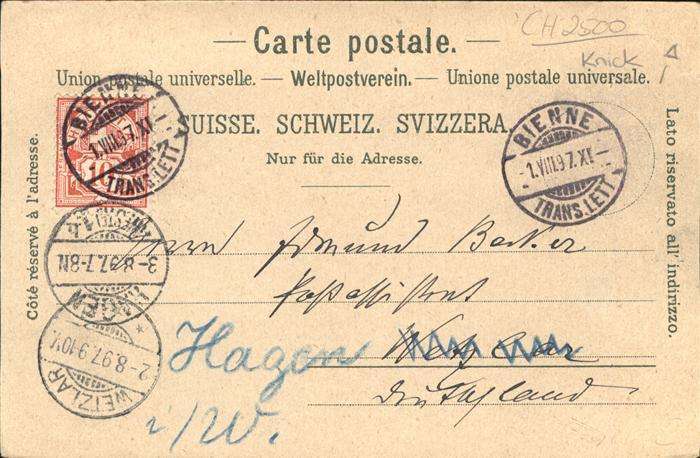 CH2500
Knick
Carte postale.
Union postale universelle. — Weltpostverein. — Unione postale universale.
SUISSE. SCHWEIZ. SVIZZERA.
Nur für die Adresse.
Côté réservé à l'adresse.
Lato riservato all' indirizzo.
10
BIENNE
1.VIII.97.XI
TRANS.LETT
BIENNE
-1.VIII.97.XI-
TRANS.LETT
HAGEN
3-8.97.7-8N
(WESTF.)
WETZLAR
2-8.97.9-10V.
Herrn Edmund Becker
Postassistent
Hagen Wetzlar
i/W. Deutschland